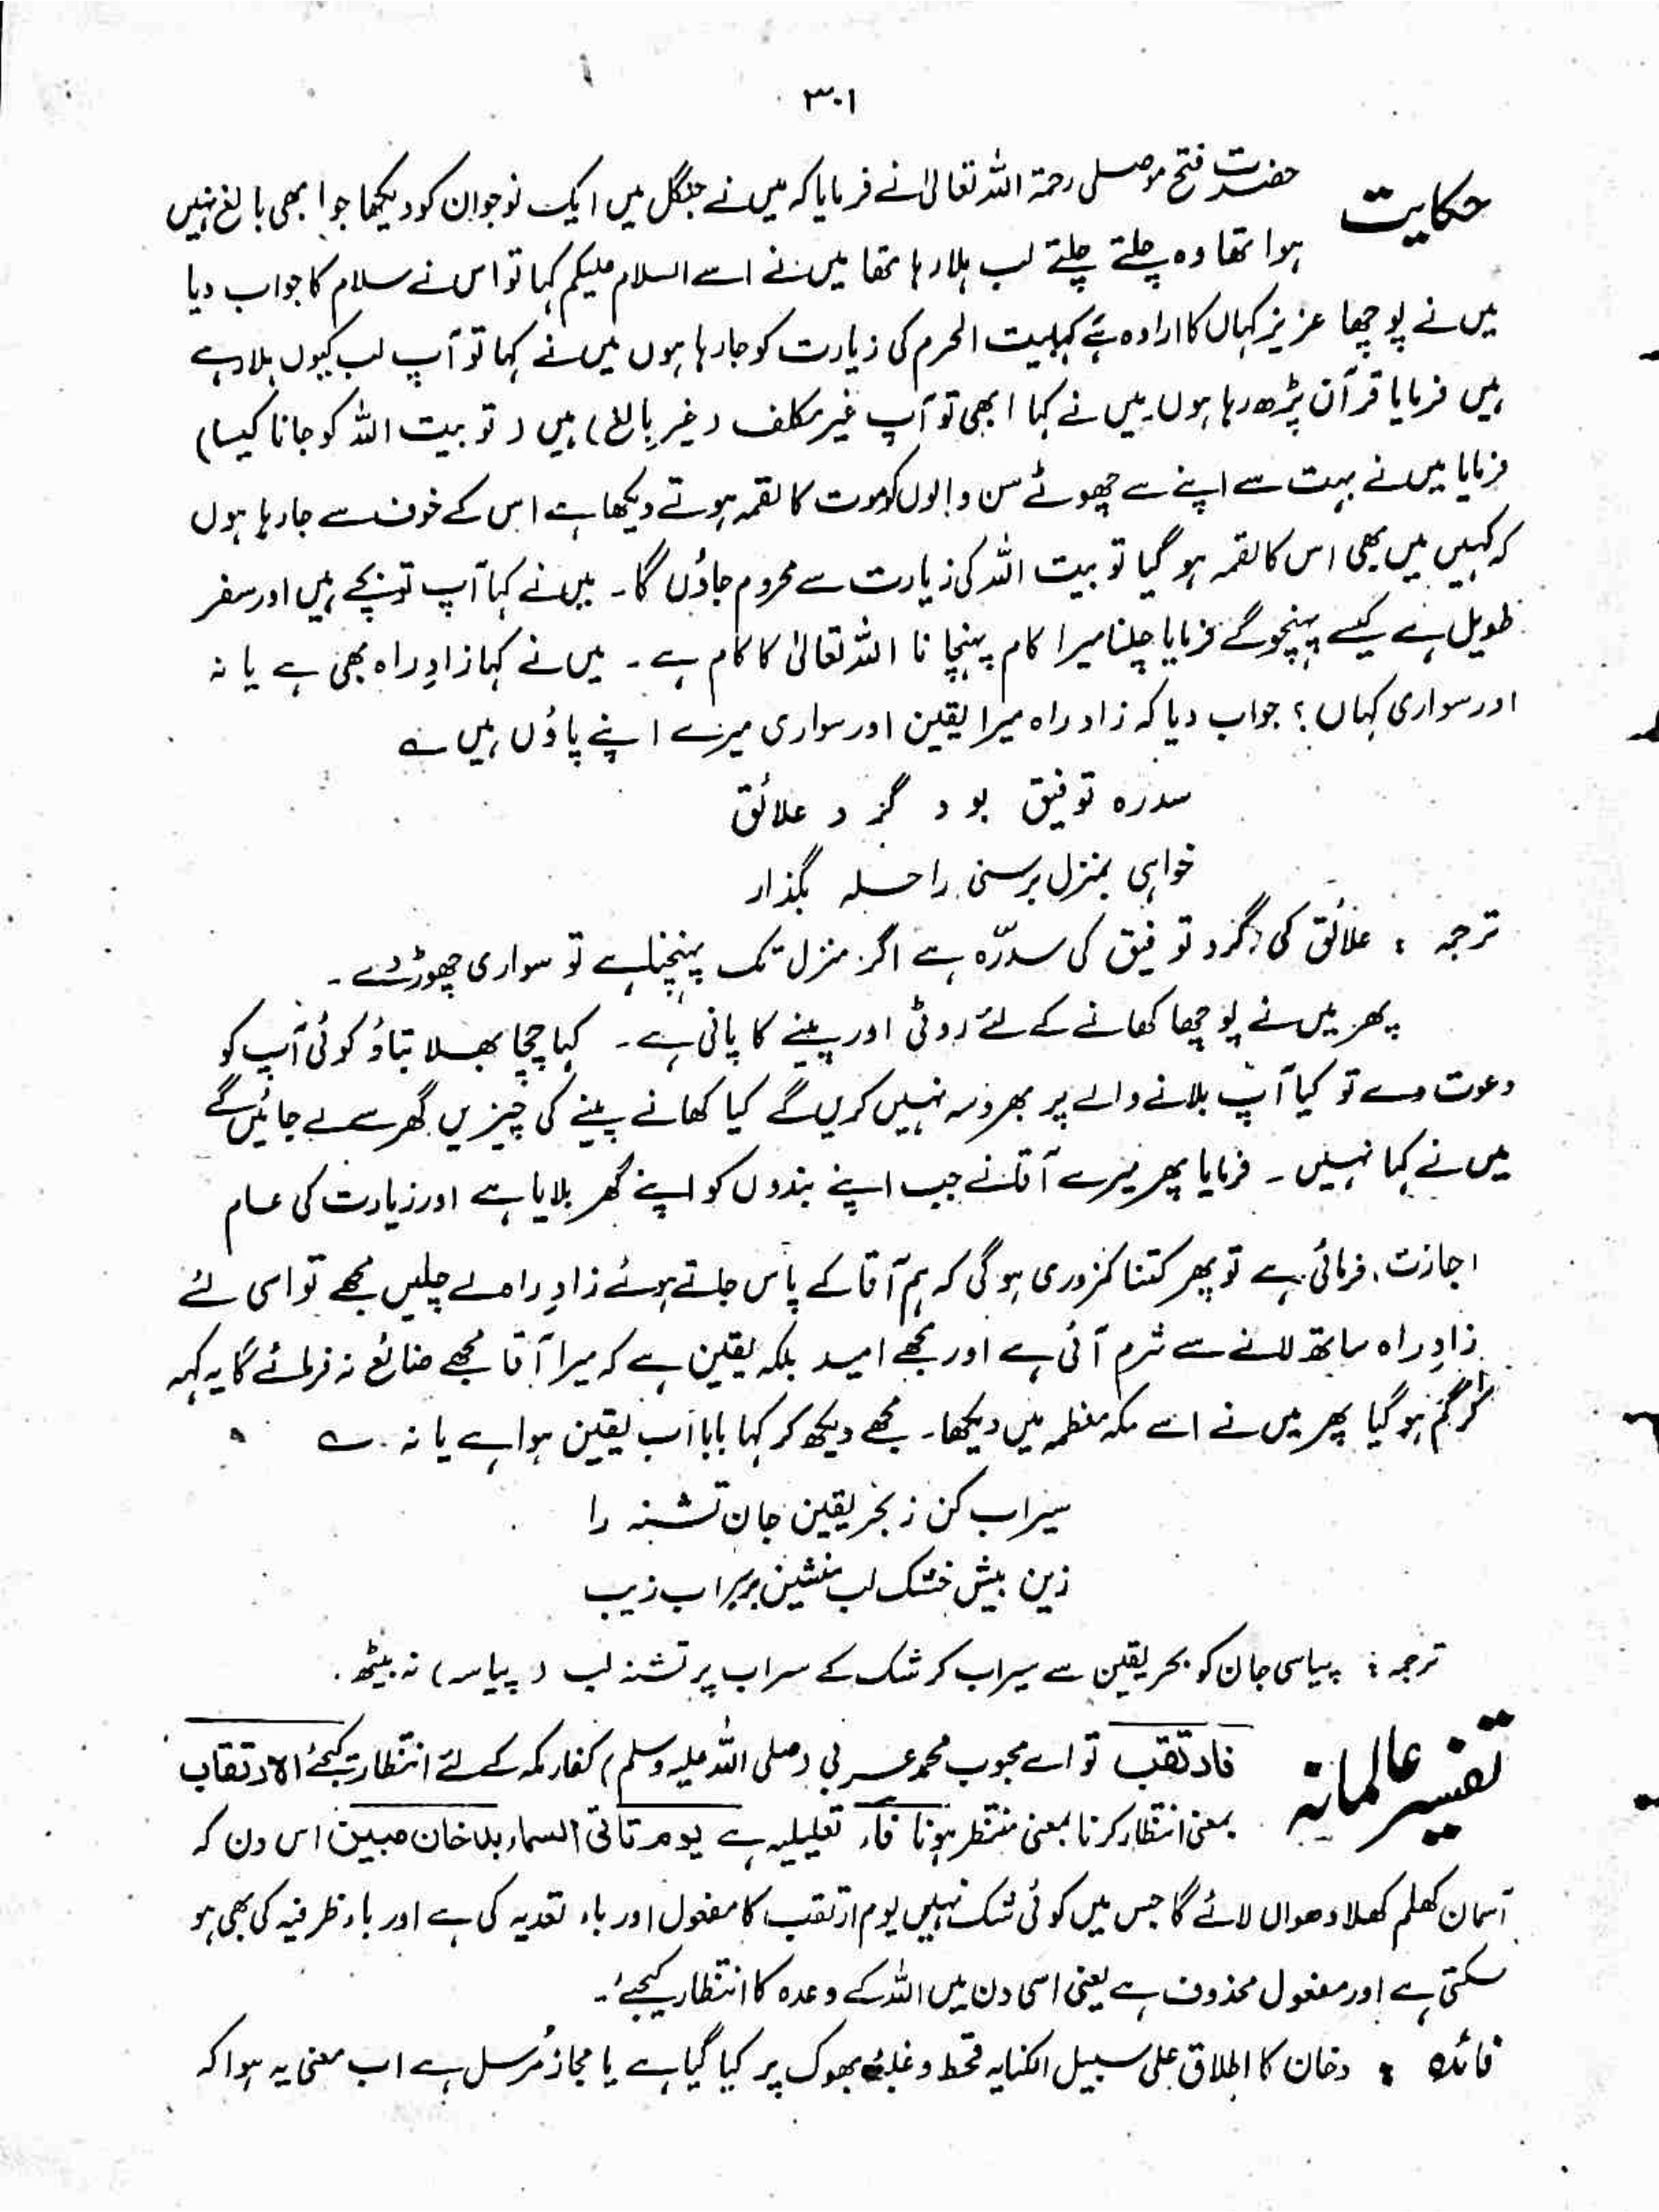 ۳۰۱
حکایت حضرت فتح موصلی رحمۃ اللہ تعالیٰ نے فرمایا کہ میں نے جنگل میں ایک نوجوان کو دیکھا جو ابھی بالغ نہیں
ہوا تھا وہ چلتے چلتے لب ہلا رہا تھا میں نے اسے السلام علیکم کہا تو اس نے سلام کا جواب دیا
میں نے پوچھا عزیز کہاں کا ارادہ ہے کہا بیت الحرم کی زیارت کو جا رہا ہوں میں نے کہا تو آپ لب کیوں ہلا رہے
ہیں فرمایا قرآن پڑھ رہا ہوں۔ میں نے کہا ابھی تو آپ غیر مکلف (غیر بالغ) ہیں (تو بیت اللہ کو جانا کیسا)
فرمایا میں نے بہت سے اپنے سے چھوٹے سن والوں کو موت کا لقمہ ہوتے دیکھا ہے اس کے خوف سے جا رہا ہوں
کہ کہیں میں بھی اس کا لقمہ ہو گیا تو بیت اللہ کی زیارت سے محروم جاؤں گا۔ میں نے کہا آپ تو بچے ہیں اور سفر
طویل ہے کیسے پہنچو گے فرمایا چلنا میرا کام پہنچانا اللہ تعالیٰ کا کام ہے۔ میں نے کہا زادِ راہ بھی ہے یا نہ
اور سواری کہاں؟ جواب دیا کہ زاد راہ میرا یقین اور سواری میرے اپنے پاؤں ہیں ؎
سدرہ توفیق بود گرد علائق
خواہی بمنزل برسی راحلہ بگذار
ترجمہ : علائق کی گرد توفیق کی سدرّہ ہے اگر منزل تک پہنچنا ہے تو سواری چھوڑ دے۔
پھر میں نے پوچھا کھانے کے لئے روٹی اور پینے کا پانی ہے۔ کہا چچا بھلا بتاؤ کوئی آپ کو
دعوت دے تو کیا آپ بلانے والے پر بھروسہ نہیں کریں گے کیا کھانے پینے کی چیزیں گھر سے لے جائیں گے
میں نے کہا نہیں۔ فرمایا پھر میرے آقا نے جب اپنے بندوں کو اپنے گھر بلایا ہے اور زیارت کی عام
اجازت فرمائی ہے تو پھر کتنا کمزوری ہو گی کہ ہم آقا کے پاس جاتے ہوئے زادِ راہ لے چلیں مجھے تو اسی لئے
زادِ راہ ساتھ لانے سے شرم آئی ہے اور مجھے امید بلکہ یقین ہے کہ میرا آقا مجھے ضائع نہ فرمائے گا یہ کہہ
کر گم ہو گیا پھر میں نے اسے مکہ معظمہ میں دیکھا۔ مجھے دیکھ کر کہا بابا اب یقین ہوا ہے یا نہ ؎
سیراب کن ز بحر یقین جان تشنہ را
زین بیش خشک لب منشین بر سراب زیب
ترجمہ : پیاسی جان کو بحر یقین سے سیراب کر شک کے سراب پر تشنہ لب (پیاسہ) نہ بیٹھ۔
تفسیر عالمانہ فارتقب تو اے محبوب محمد عربی (صلی اللہ علیہ وسلم) کفار مکہ کے لئے انتظار کیجئے الارتقاب
بمعنی انتظار کرنا بمعنی منتظر ہونا فاء تعلیلیہ ہے یوم تاتی السماء بدخان مبین اس دن کہ
آسمان کھلم کھلا دھواں لائے گا جس میں کوئی شک نہیں یوم ارتقب کا مفعول اور باء تعدیہ کی ہے اور باء ظرفیہ کی بھی ہو
سکتی ہے اور مفعول محذوف ہے یعنی اسی دن میں اللہ کے وعدہ کا انتظار کیجئے۔
فائدہ : دخان کا اطلاق علی سبیل الکنایہ قحط و غلبہ بھوک پر کیا گیا ہے یا مجاز مُرسل ہے اب معنی یہ ہوا کہ